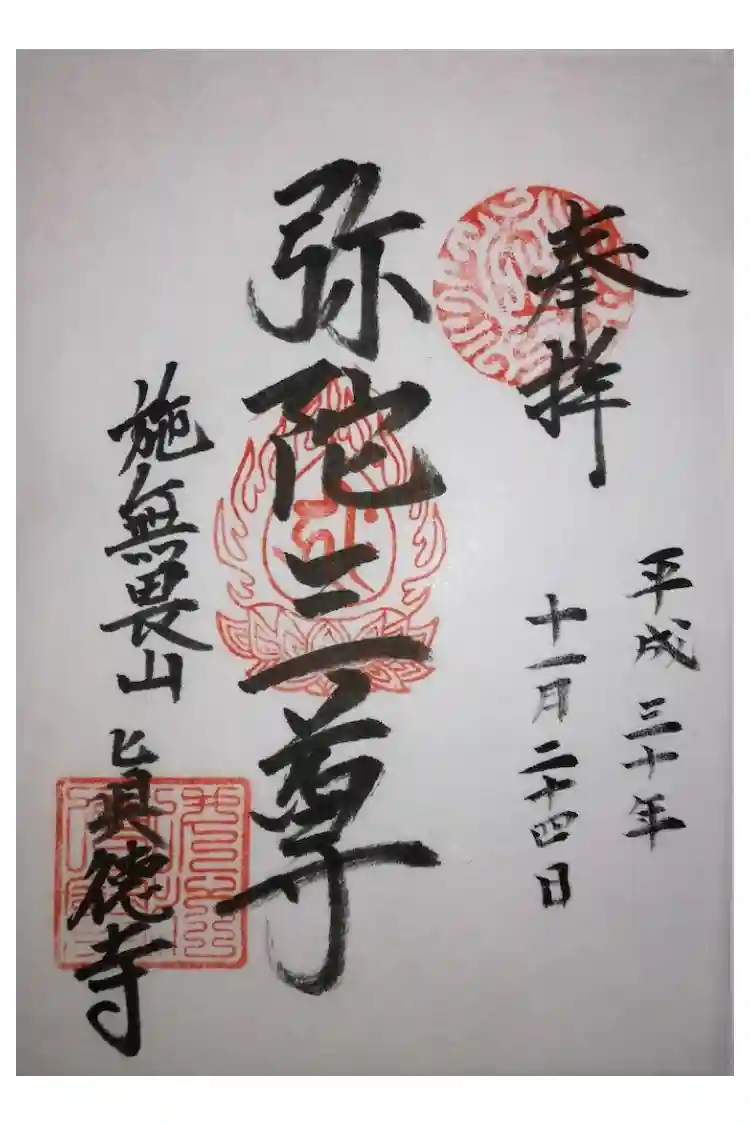 奉拝
平成三十年
十一月二十四日
弥陀三尊
施無畏山
眞德寺